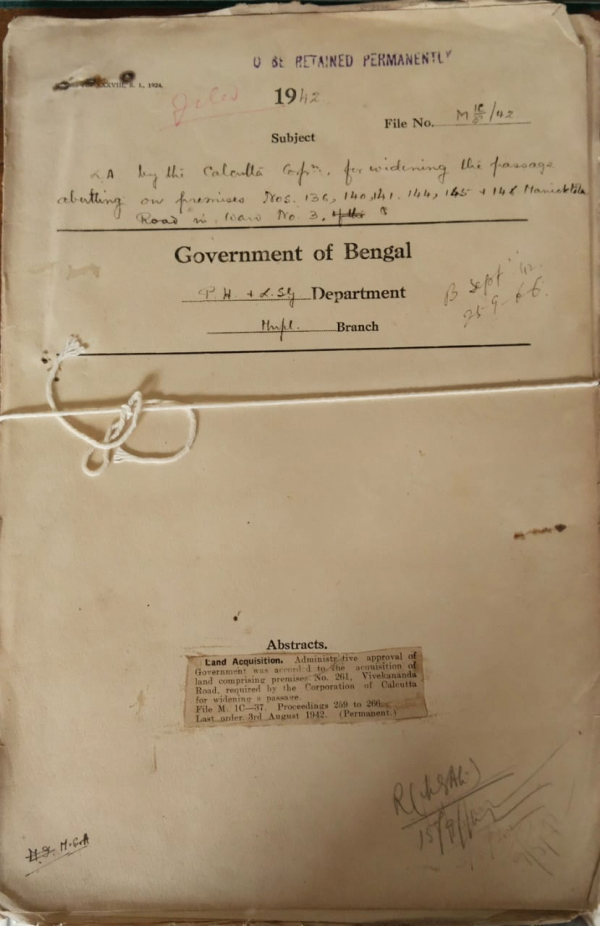 O BE RETAINED PERMANENTLY
XXVIII, S. 1, 1926.
Filed
1942
File No. M 1C/5 /42
Subject
L.A by the Calcutta Corpn. for widening the passage
abutting on premises Nos. 136, 140, 141, 144, 145 + 146 Manicktola
Road in Ward No. 3.
Government of Bengal
P.H + L.S.G Department
Munpl. Branch
B Sept '42.
25-9-66.
Abstracts.
Land Acquisition. Administrative approval of
Government was accorded to the acquisition of
land comprising premises No. 261, Vivekananda
Road, required by the Corporation of Calcutta
for widening a passage.
File M. 1C—37. Proceedings 259 to 266.
Last order 3rd August 1942. (Permanent.)
M.G.A